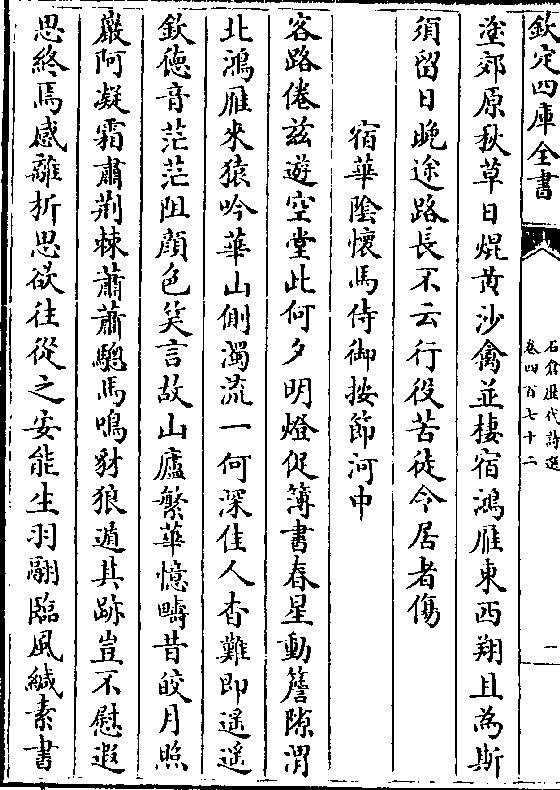 欽定四庫全書
石倉歷代詩選
卷四百七十二
一
塗郊原秋草日焜黄沙禽並棲宿鴻雁東西翔且為斯
須留日晚途路長不云行役苦徒令居者傷
宿華陰懷馬侍御按節河中
客路倦兹遊空堂此何夕明燈促簿書春星動簷隙渭
北鴻雁來猿吟華山側濁流一何深佳人杳難即遥遥
欽徳音茫茫阻顔色笑言故山廬繁華憶疇昔皎月照
巖阿凝霜肅荆棘蕭蕭驄馬鳴豺狼遁其跡豈不慰遐
思終焉感離析思欲往從之安能生羽翮臨風緘素書